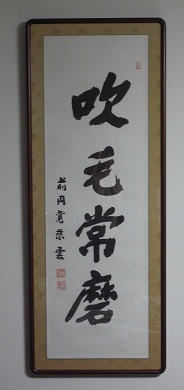 吹毛常磨
前円覚慈雲